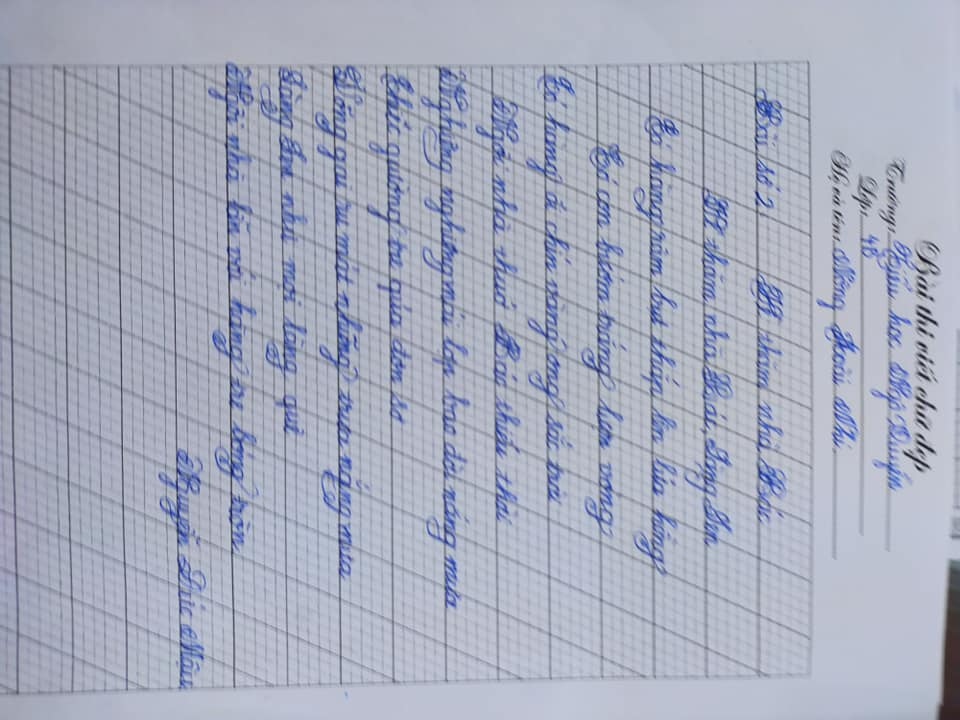 Bài thi viết chữ đẹp
Trường: Tiểu học
Lớp: 4B
Họ và tên: Nông Hoài Nhi.
Bài số 2: Về thăm nhà Bác
Về thăm nhà Bác, làng Sen
Có hàng râm bụt thắp lên lửa hồng
Có con bướm trắng lượn vòng
Có hùng ổi chín vàng ong sắc trời
Ngôi nhà thuở Bác thiếu thời
Nghiêng nghiêng mái lợp bao đời nắng mưa
Chiếc giường tre quá đơn sơ
Võng gai ru mát những trưa nắng mưa
Làng Sen như mọi làng quê
Ngôi nhà lẫn với hàng tre bóng tròn.
Nguyễn Đức Mậu